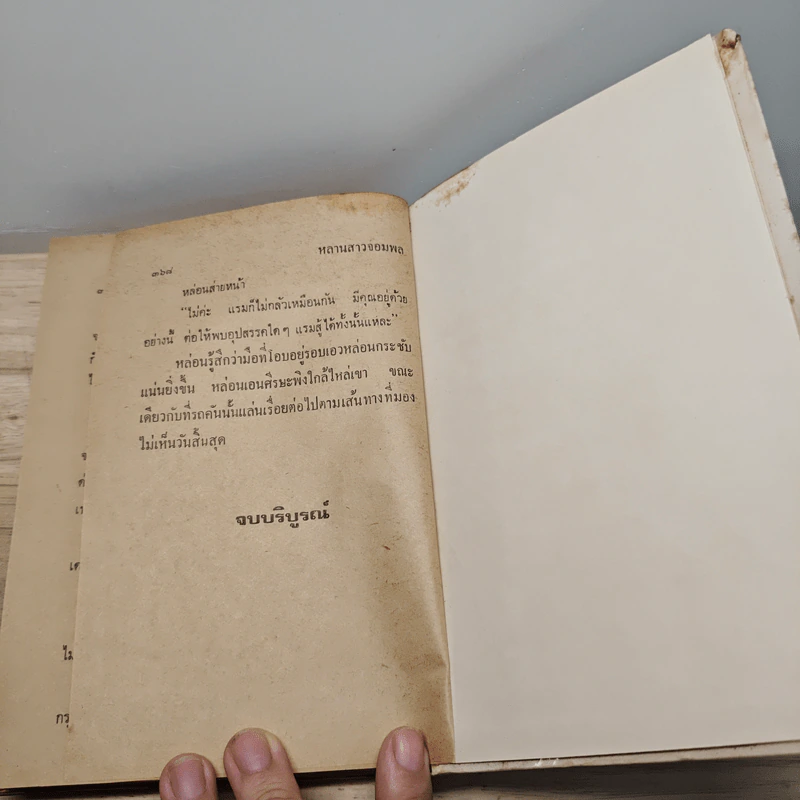 หลานสาวจอมพล
๓๖๘
หล่อนส่ายหน้า
"ไม่ค่ะ แรมก็ไม่กลัวเหมือนกัน มีคุณอยู่ด้วย
อย่างนี้ ต่อให้พบอุปสรรคใดๆ แรมสู้ได้ทั้งนั้นแหละ"
หล่อนรู้สึกว่ามือที่โอบอยู่รอบเอวหล่อนกระชับ
แน่นยิ่งขึ้น หล่อนเอนศีรษะพิงใกล้ไหล่เขา ขณะ
เดียวกับที่รถคันนั้นแล่นเรื่อยต่อไปตามเส้นทางที่มอง
ไม่เห็นวันสิ้นสุด
จบบริบูรณ์